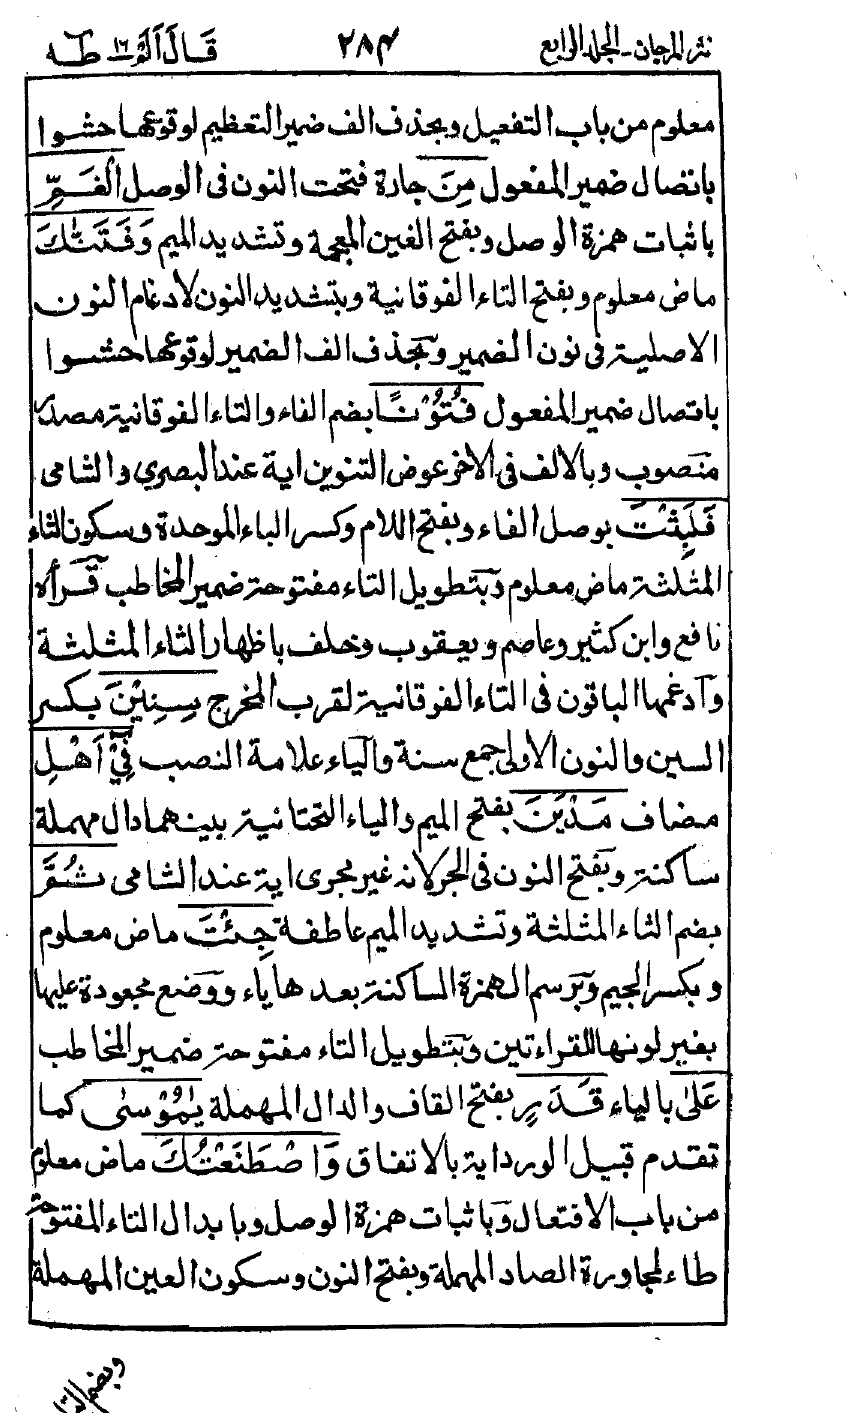 نثر المرجان - الجلد الرابع ٢٨٤ قَالَ اَلَمْ ١٦ طٰه
معلوم من باب التفعيل وبحذف الف ضمير التعظيم لوقوعها حشوا
باتصال ضمير المفعول مِنَ جارة فتحت النون فى الوصل الْغَمِّ
باثبات همزة الوصل وبفتح الغين المعجمة وتشديد الميم وَفَتَنّٰكَ
ماض معلوم وبفتح التاء الفوقانية وبتشديد النون لادغام النون
الاصلية فى نون الضمير وبحذف الف الضمير لوقوعها حشوا
باتصال ضمير المفعول فُتُوْنًا بضم الفاء والتاء الفوقانية مصدر
منصوب وبالالف فى الاخر عوض التنوين اية عند البصري والشامى
فَلَبِثْتَ بوصل الفاء وبفتح اللام وكسر الباء الموحدة وسكون الثاء
المثلثة ماض معلوم وبتطويل التاء مفتوحة ضمير المخاطب قرأه
نافع وابن كثير وعاصم ويعقوب وخلف باظهار الثاء المثلثة
وادغمها الباقون فى التاء الفوقانية لقرب المخرج سِنِيْنَ بكسر
السين والنون الاولى جمع سنة والياء علامة النصب فِيْٓ اَهْلِ
مضاف مَدْيَنَ بفتح الميم والياء التحتانية بينهما دال مهملة
ساكنة وبفتح النون فى الجر لانه غير مجرى اية عند الشامى ثُمَّ
بضم الثاء المثلثة وتشديد الميم عاطفة جِئْتَ ماض معلوم
وبكسر الجيم وبرسم الهمزة الساكنة بعدها ياء ووضع مجعودة عليها
بغير لونها للقراءتين وبتطويل التاء مفتوحة ضمير المخاطب
عَلٰى بالياء قَدَرٍ بفتح القاف والدال المهملة يٰمُوْسٰى كما
تقدم قبيل الورد اية بالاتفاق وَاصْطَنَعْتُكَ ماض معلوم
من باب الافتعال وباثبات همزة الوصل وبابدال التاء المفتوحة
طاء لمجاورة الصاد المهملة وبفتح النون وسكون العين المهملة
وبضم التاء